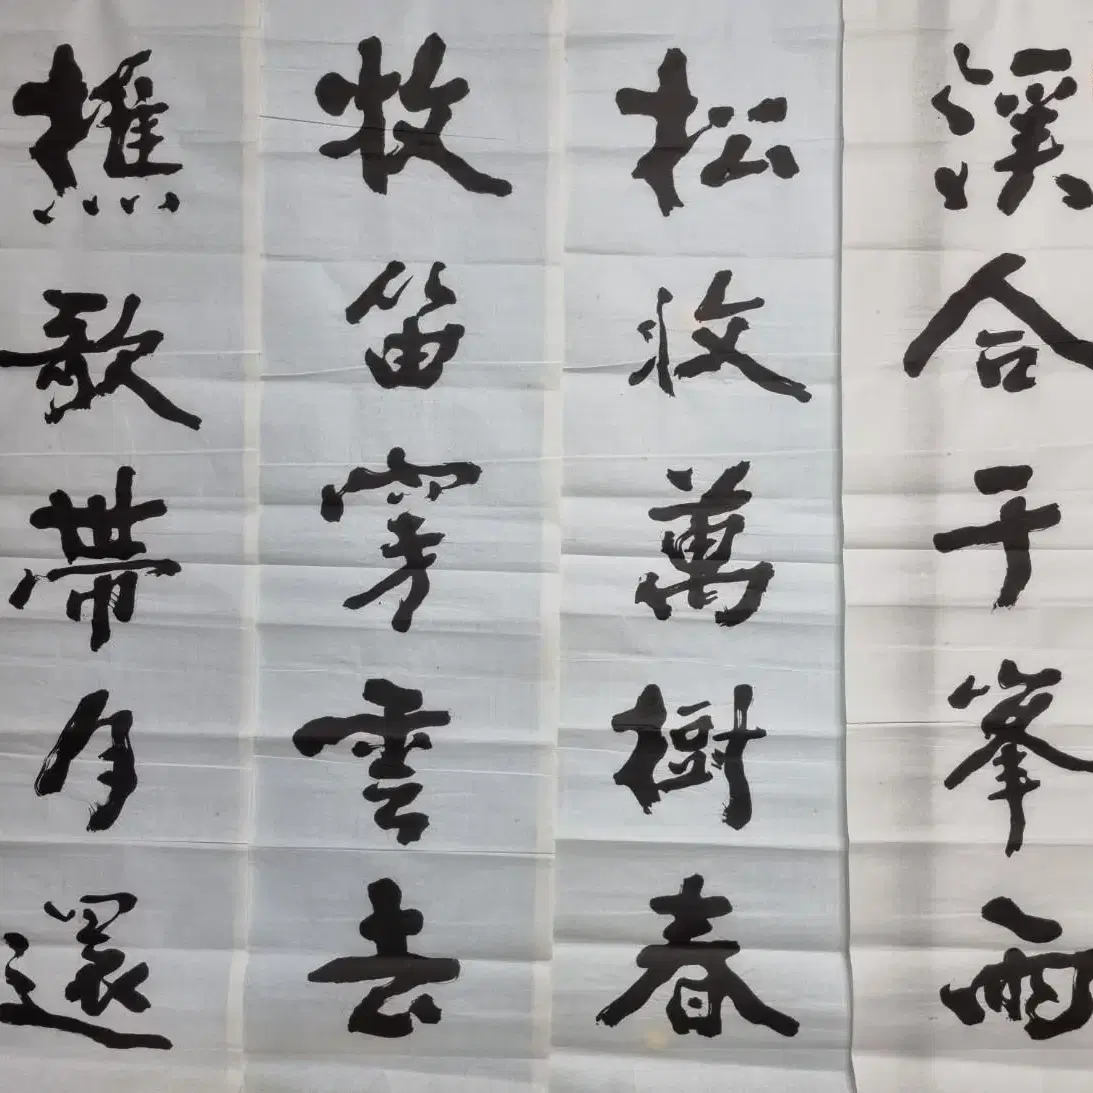 溪合千峯雨
松收萬樹春
牧笛穿雲去
樵歌帶月還